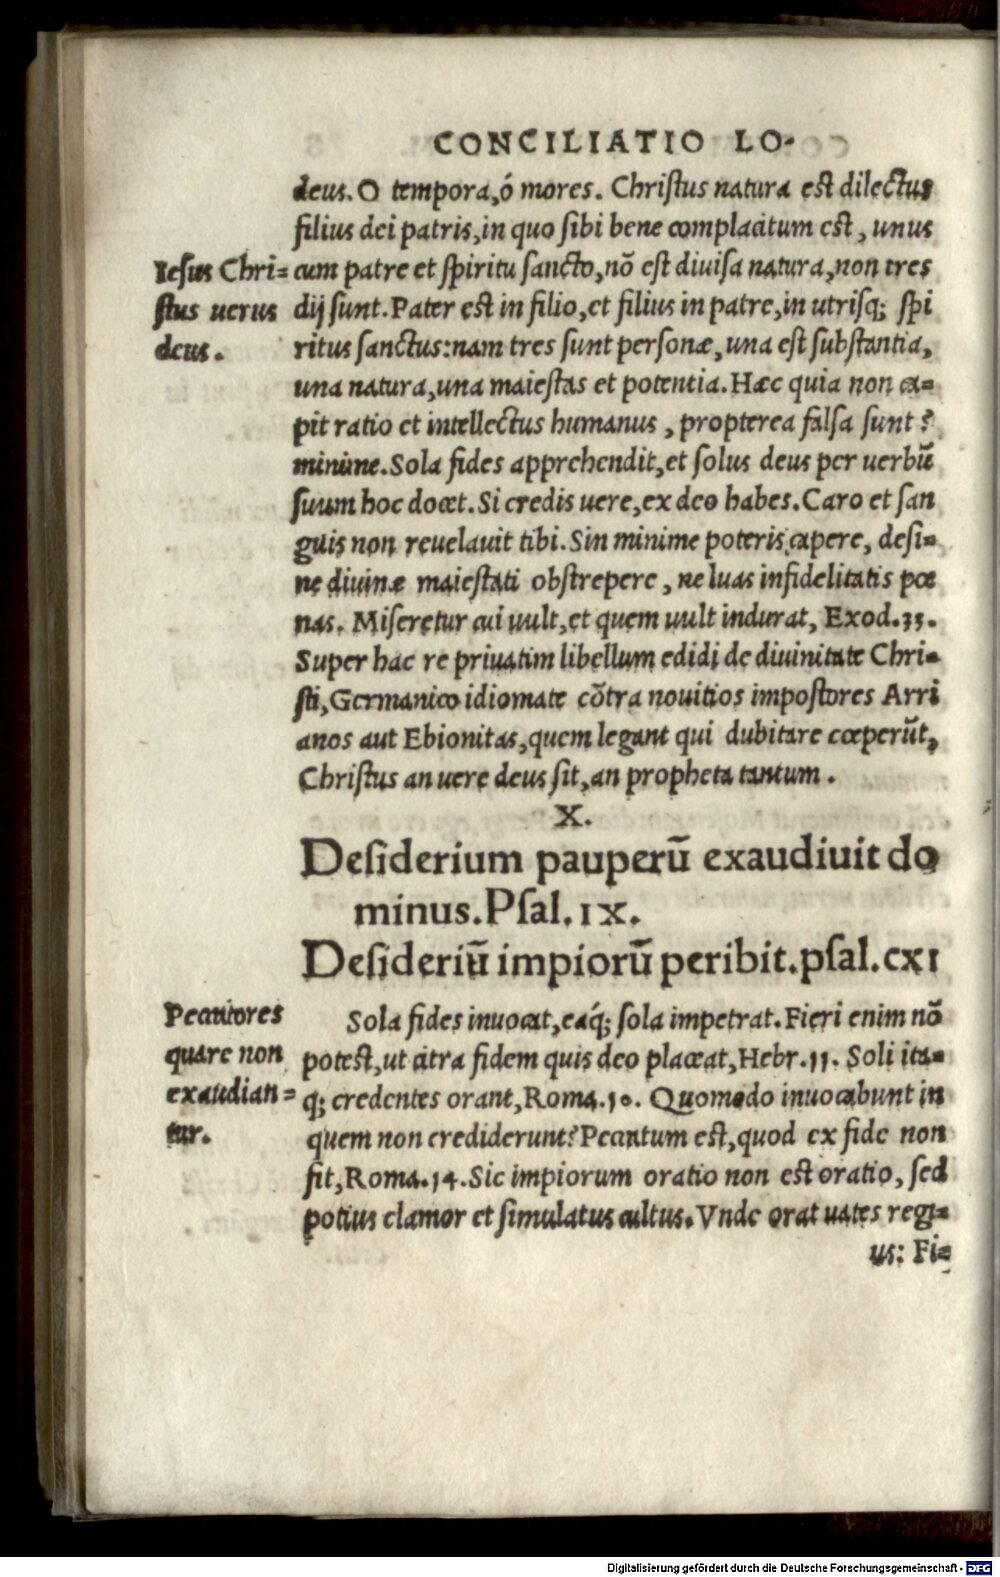 CONCILIATIO LO-
deus. O tempora, ó mores. Christus natura est dilectus
filius dei patris, in quo sibi bene complacitum est, unus
cum patre et spiritu sancto, nō est diuisa natura, non tres
dij sunt. Pater est in filio, et filius in patre, in utrisq; spi
ritus sanctus: nam tres sunt personæ, una est substantia,
una natura, una maiestas et potentia. Hæc quia non ca=
pit ratio et intellectus humanus, propterea falsa sunt?
minime. Sola fides apprehendit, et solus deus per uerbū
suum hoc docet. Si credis uere, ex deo habes. Caro et san
guis non reuelauit tibi. Sin minime poteris capere, desi=
ne diuinæ maiestati obstrepere, ne luas infidelitatis pœ
nas. Miseretur cui uult, et quem uult indurat, Exod. 33.
Super hac re priuatim libellum edidi de diuinitate Chri=
sti, Germanico idiomate cōtra nouitios impostores Arri
anos aut Ebionitas, quem legant qui dubitare cœperūt,
Christus an uere deus sit, an propheta tantum.
Iesus Chri=
stus uerus
deus.
X.
Desiderium pauperū exaudiuit do
minus. Psal. IX.
Desideriū impiorū peribit. psal. cxi
Peccatores
quare non
exaudian=
tur.
Sola fides inuocat, eaq́; sola impetrat. Fieri enim nō
potest, ut citra fidem quis deo placeat, Hebr. 11. Soli ita=
q; credentes orant, Roma. 10. Quomodo inuocabunt in
quem non crediderunt? Peccatum est, quod ex fide non
fit, Roma. 14. Sic impiorum oratio non est oratio, sed
potius clamor et simulatus cultus. Vnde orat uates regi=
us: Fi=
Digitalisierung gefördert durch die Deutsche Forschungsgemeinschaft - DFG